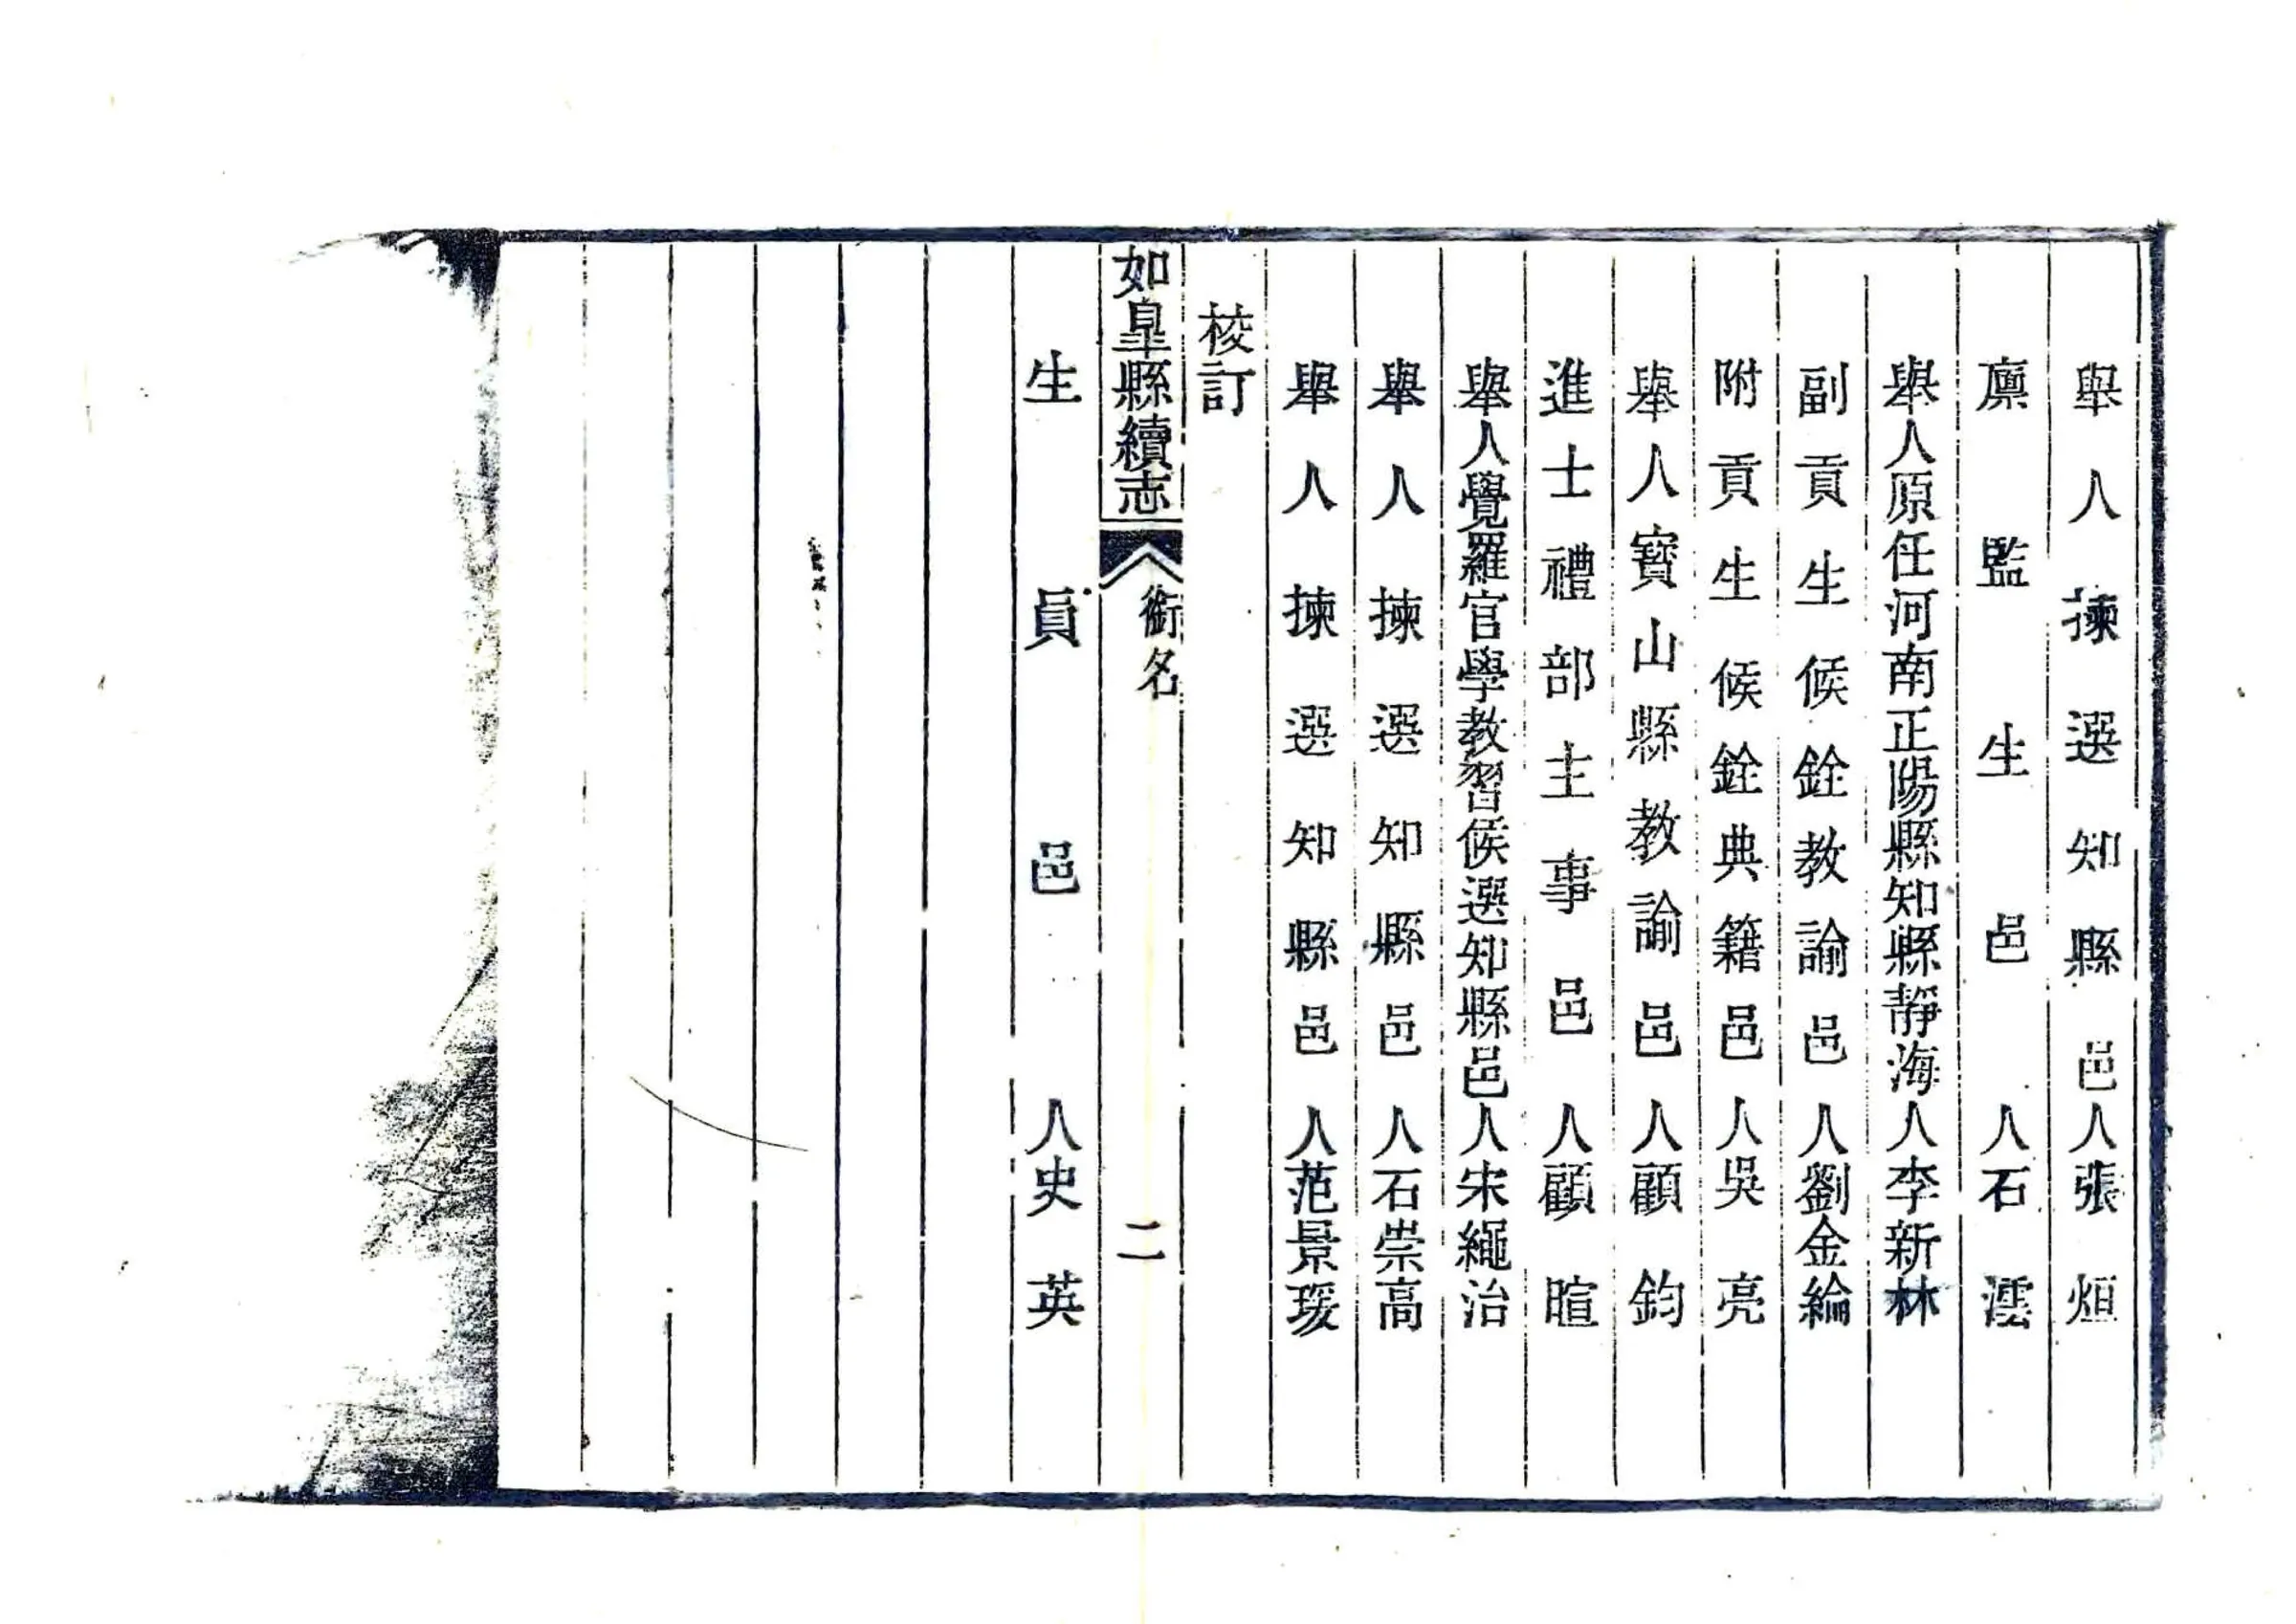 舉人揀選知縣邑人張烜
廪監生邑人石澐
舉人原任河南正陽縣知縣靜海人李新林
副貢生候銓教諭邑人劉金綸
附貢生候銓典籍邑人吳亮
舉人寶山縣教諭邑人顧鈞
進士禮部主事邑人顧暄
舉人覺羅官學教習候選知縣邑人宋繩治
舉人揀選知縣邑人石崇高
舉人揀選知縣邑人范景瑗
校訂
如皐縣續志
銜名
二
生員邑人史英